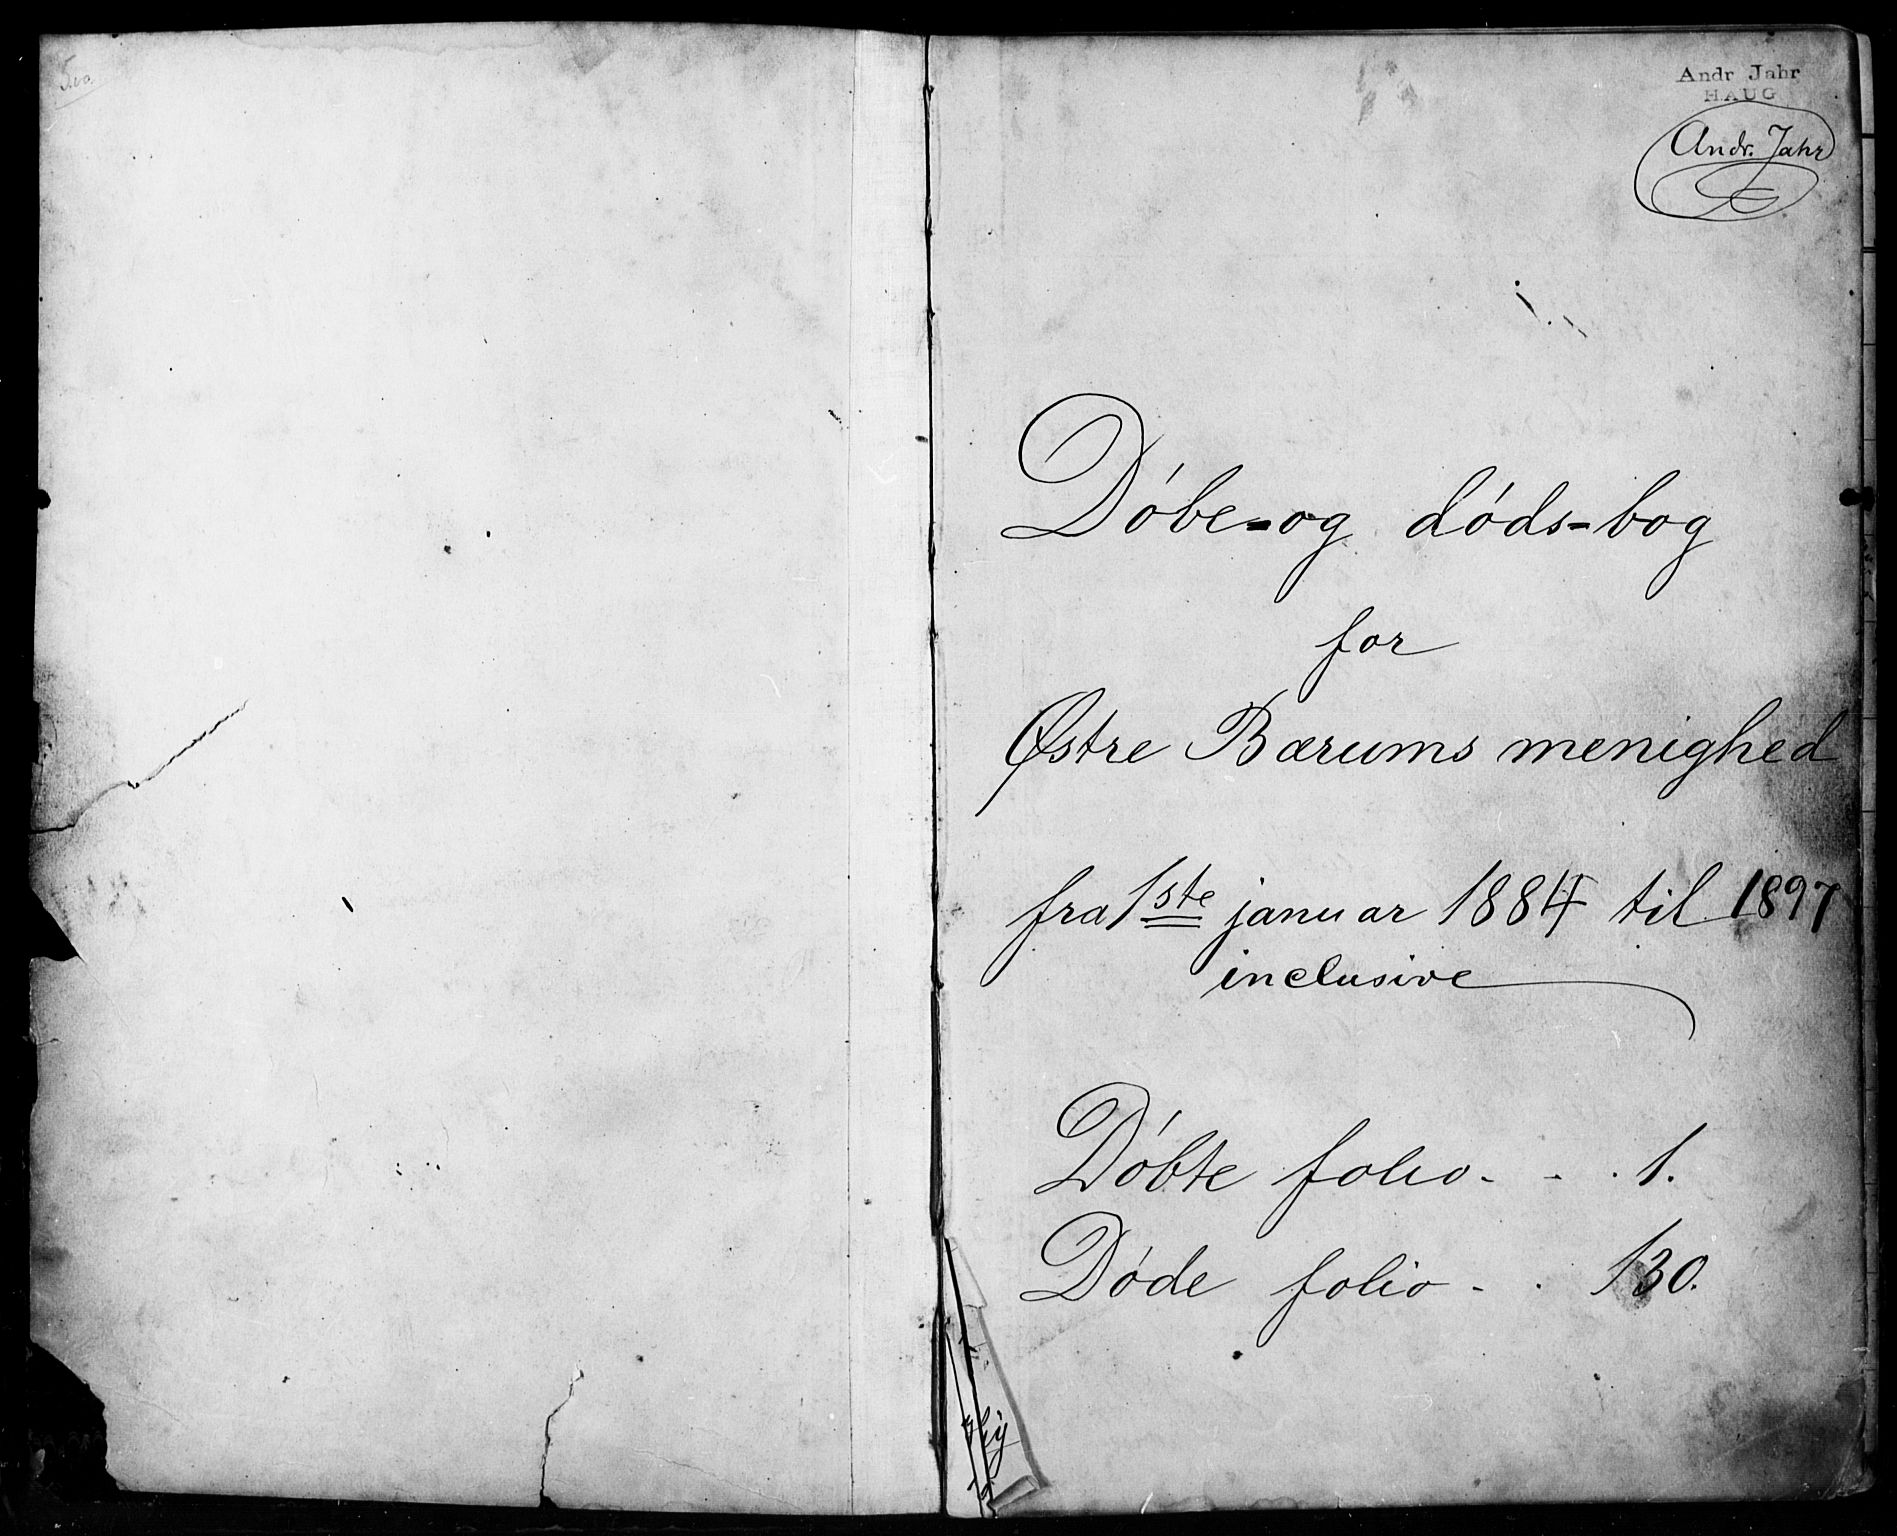 Andr Jahr
HAUG
Andr. Jahr
Døbe=og døds=bog
for
Østre Bærums menighed
fra 1ste januar 1884 til 1897
inclusive
Døbte folio - - . 1.
Døde folio - . 130.